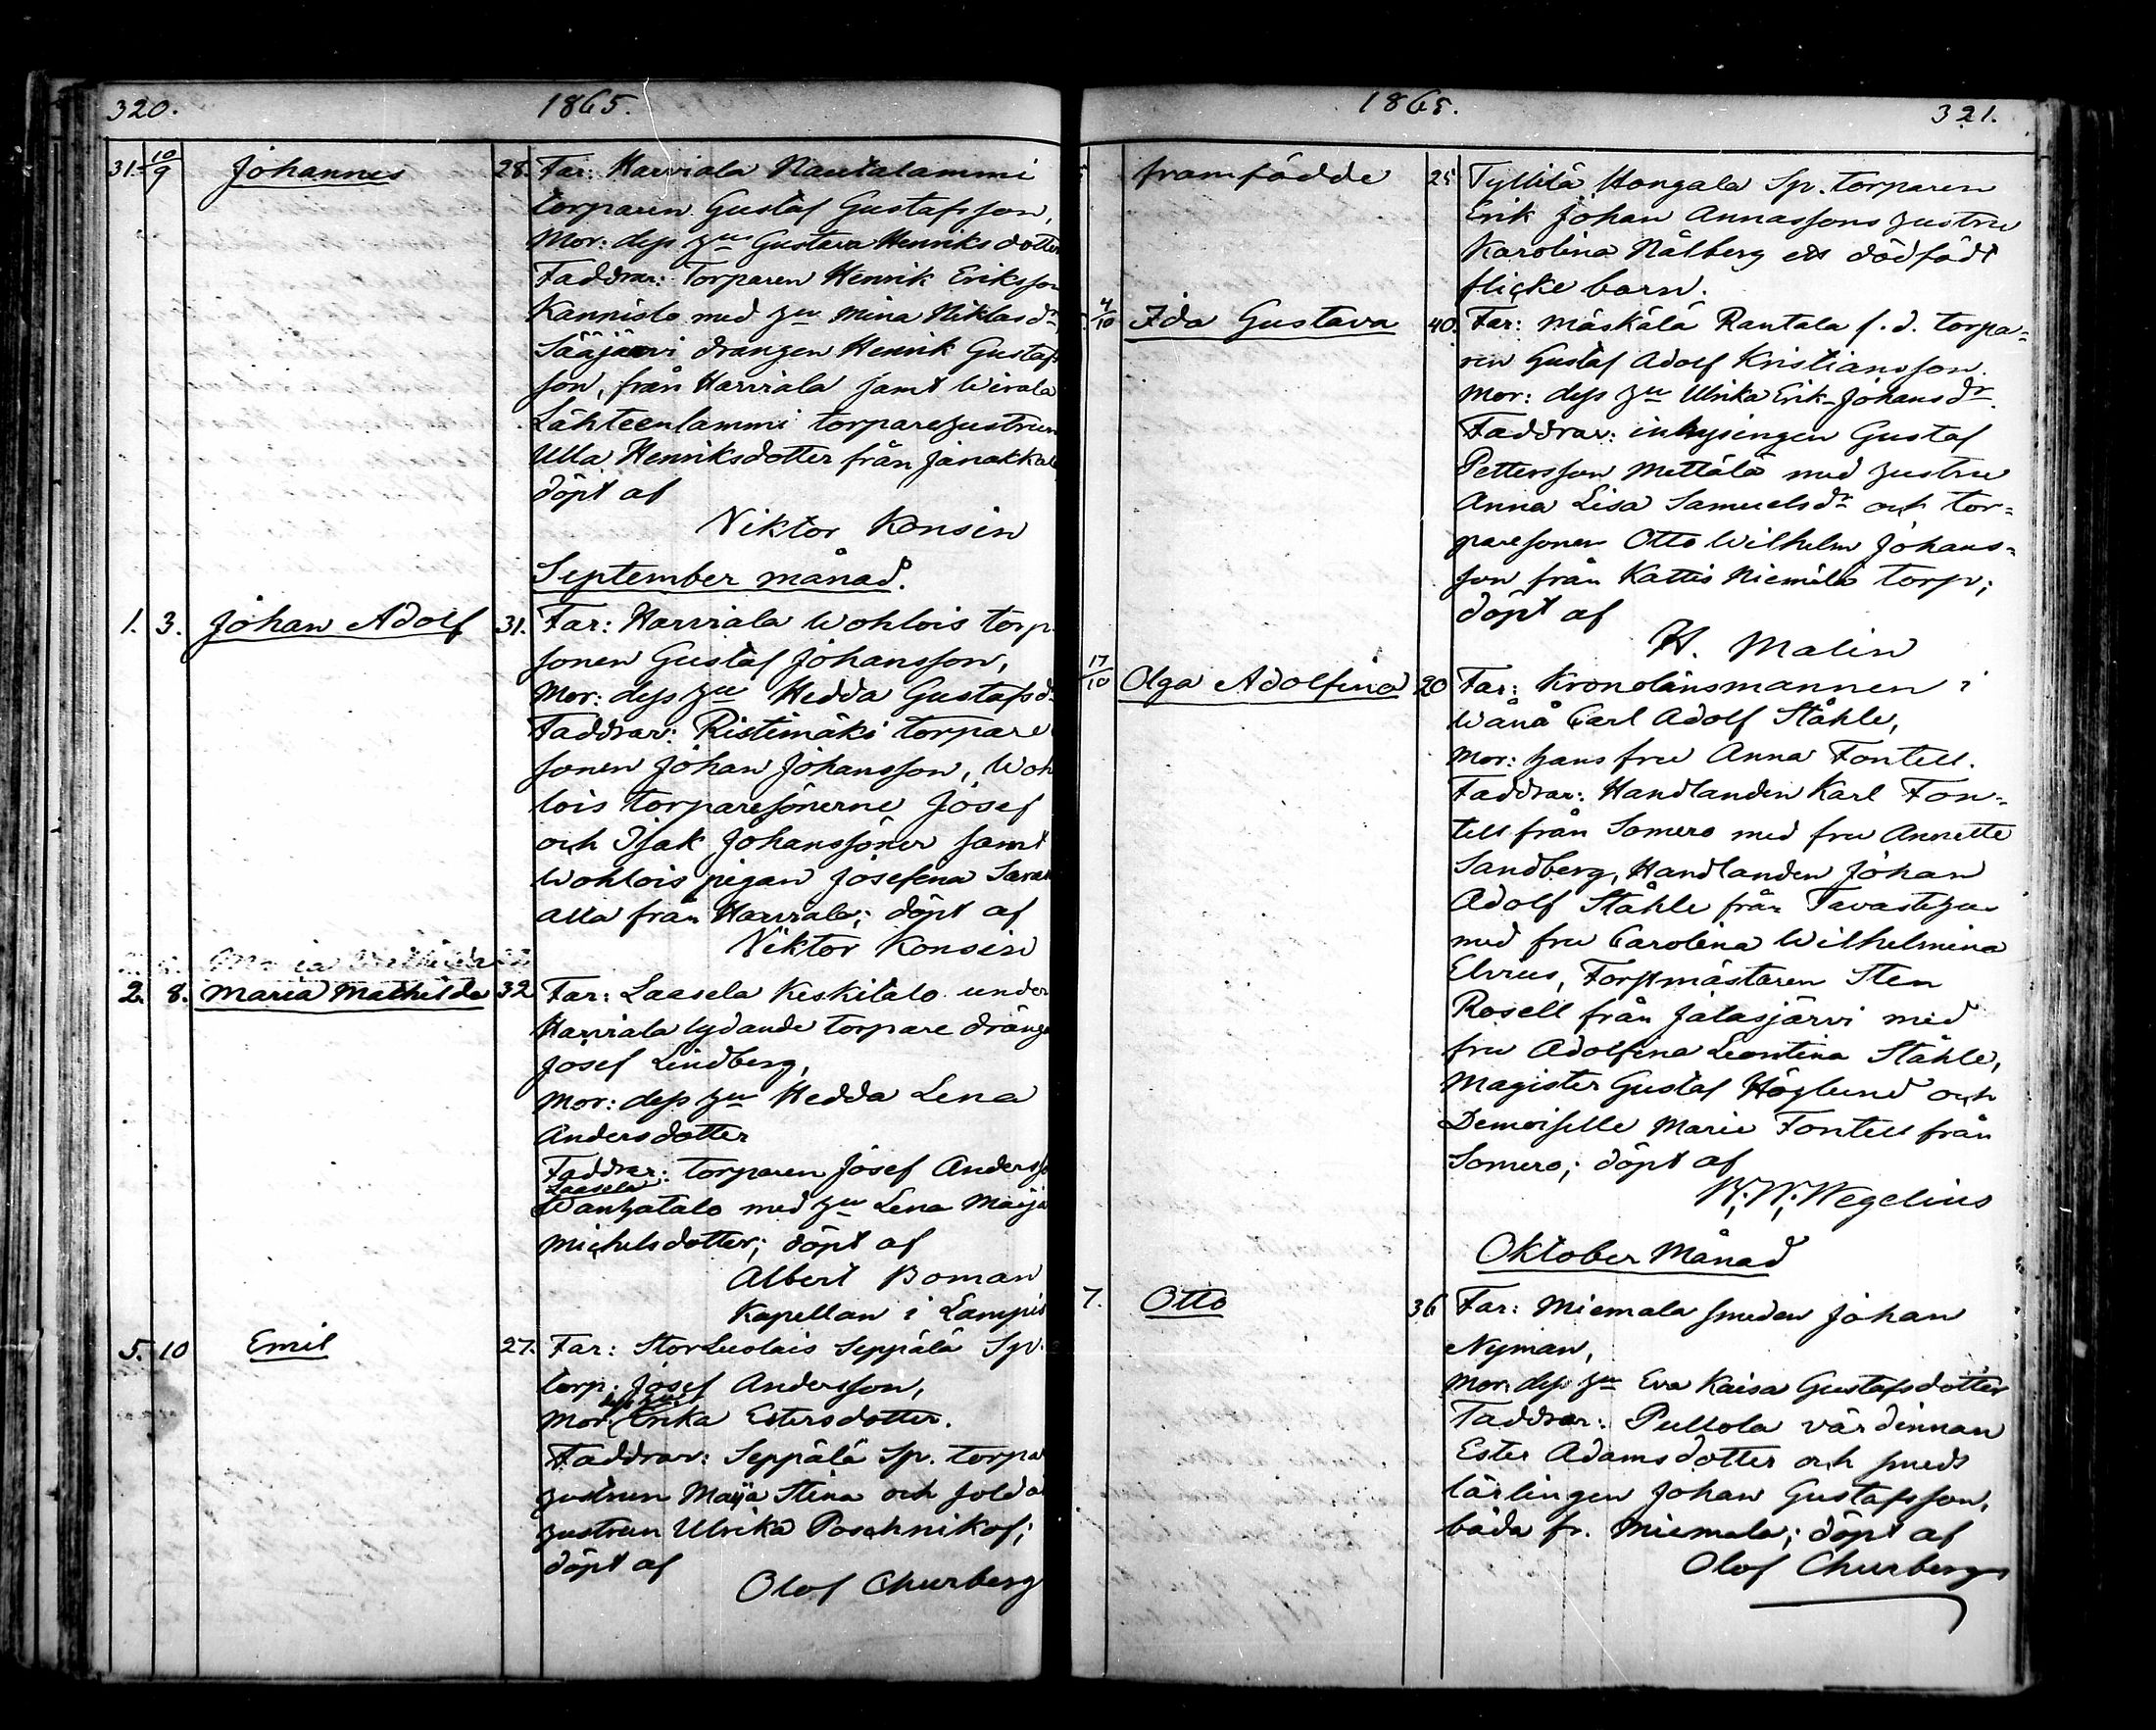 320. 1865.
31. 10/9 Johannes 28. Far: Harviala Rautalammi
torparen Gustaf Gustafsson,
Mor: dess hu Gustava Henriksdotter
Faddrar: Torparen Henrik Eriksson
Kannisto med hu Mina Niklasdr
Sääjärvi drängen Henrik Gustaf
son, från Harviala samt Wirala
Lähteenlammi torparehustrun
Ulla Henriksdotter från Janakkala
döpt af
Viktor Konsin
September månad.
1. 3. Johan Adolf 31. Far: Harviala Wohlois torp.
sonen Gustaf Johansson,
Mor: dess hu Hedda Gustafsdr
Faddrar: Ristimäki torpare
sonen Johan Johansson, Woh
lois torparesönerne Josef
och Isak Johanssöner samt
Wohlois pigan Josefina
från Harviala; döpt af
Viktor Konsin
2. 8. Maria Mathilda 32 Far: Laasela Keskitalo under
Harviala lydande torpare dräng
Josef Lindberg,
Mor: dess hu Hedda Lena
Andersdotter
Faddrar: torparen Josef Anderss
Laasela
Wanhatalo med hu Lena Maija
Michelsdotter; döpt af
Albert Boman
Kapellan i Lampis
5. 10 Emil 27. Far: StorLuolais Seppälä Sp.
torp. Josef Andersson,
dess hu
Mor: Erika Estersdotter.
Faddrar: Seppälä Sp. torpar
hustrun Maija Stina och solda
hustrun Ulrika Poschnikof;
döpt af
Olof Churberg
1865. 321.
framfödde 25 Tyllilä Hongala Sp. torparen
Erik Johan Annassons hustru
Karolina Nålberg ett dödfödt
flickebarn.
4/10 Ida Gustava 40. Far: Mäskälä Rantala f.d. torpa=
ren Gustaf Adolf Kristiansson.
Mor: dess hu Ulrika Erik-Johansdr.
Faddrar: inhysingen Gustaf
Pettersson Mettälä med hustru
Anna Lisa Samuelsdr och tor=
paresonen Otto Wilhelm Johans=
son från Kattis Niemilä torp;
döpt af
H. Malin
17/10 Olga Adolfina 20 Far: Kronolänsmannen i
Wånå Carl Adolf Ståhle,
Mor: hans fru Anna Fontell.
Faddrar: Handlanden Karl Fon=
tell från Somero med fru Annette
Sandberg, Handlanden Johan
Adolf Ståhle från Tavastehus
med fru Carolina Wilhelmina
Elvrus, Forstmästaren Sten
Rosell från Jalasjärvi med
fru Adolfina Leontina Ståhle,
Magister Gustaf Höglund och
Demoiselle Marie Fontell från
Somero; döpt af
W. W. Wegelius
Oktober Månad
7. Otto 36 Far: Miemala smeden Johan
Nyman,
Mor: dess hu Eva Kaisa Gustafsdotter
Faddrar: Pullola värdinnan
Ester Adamsdotter och smeds
lärlingen Johan Gustafsson,
båda fr. Miemala; döpt af
Olof Churberg